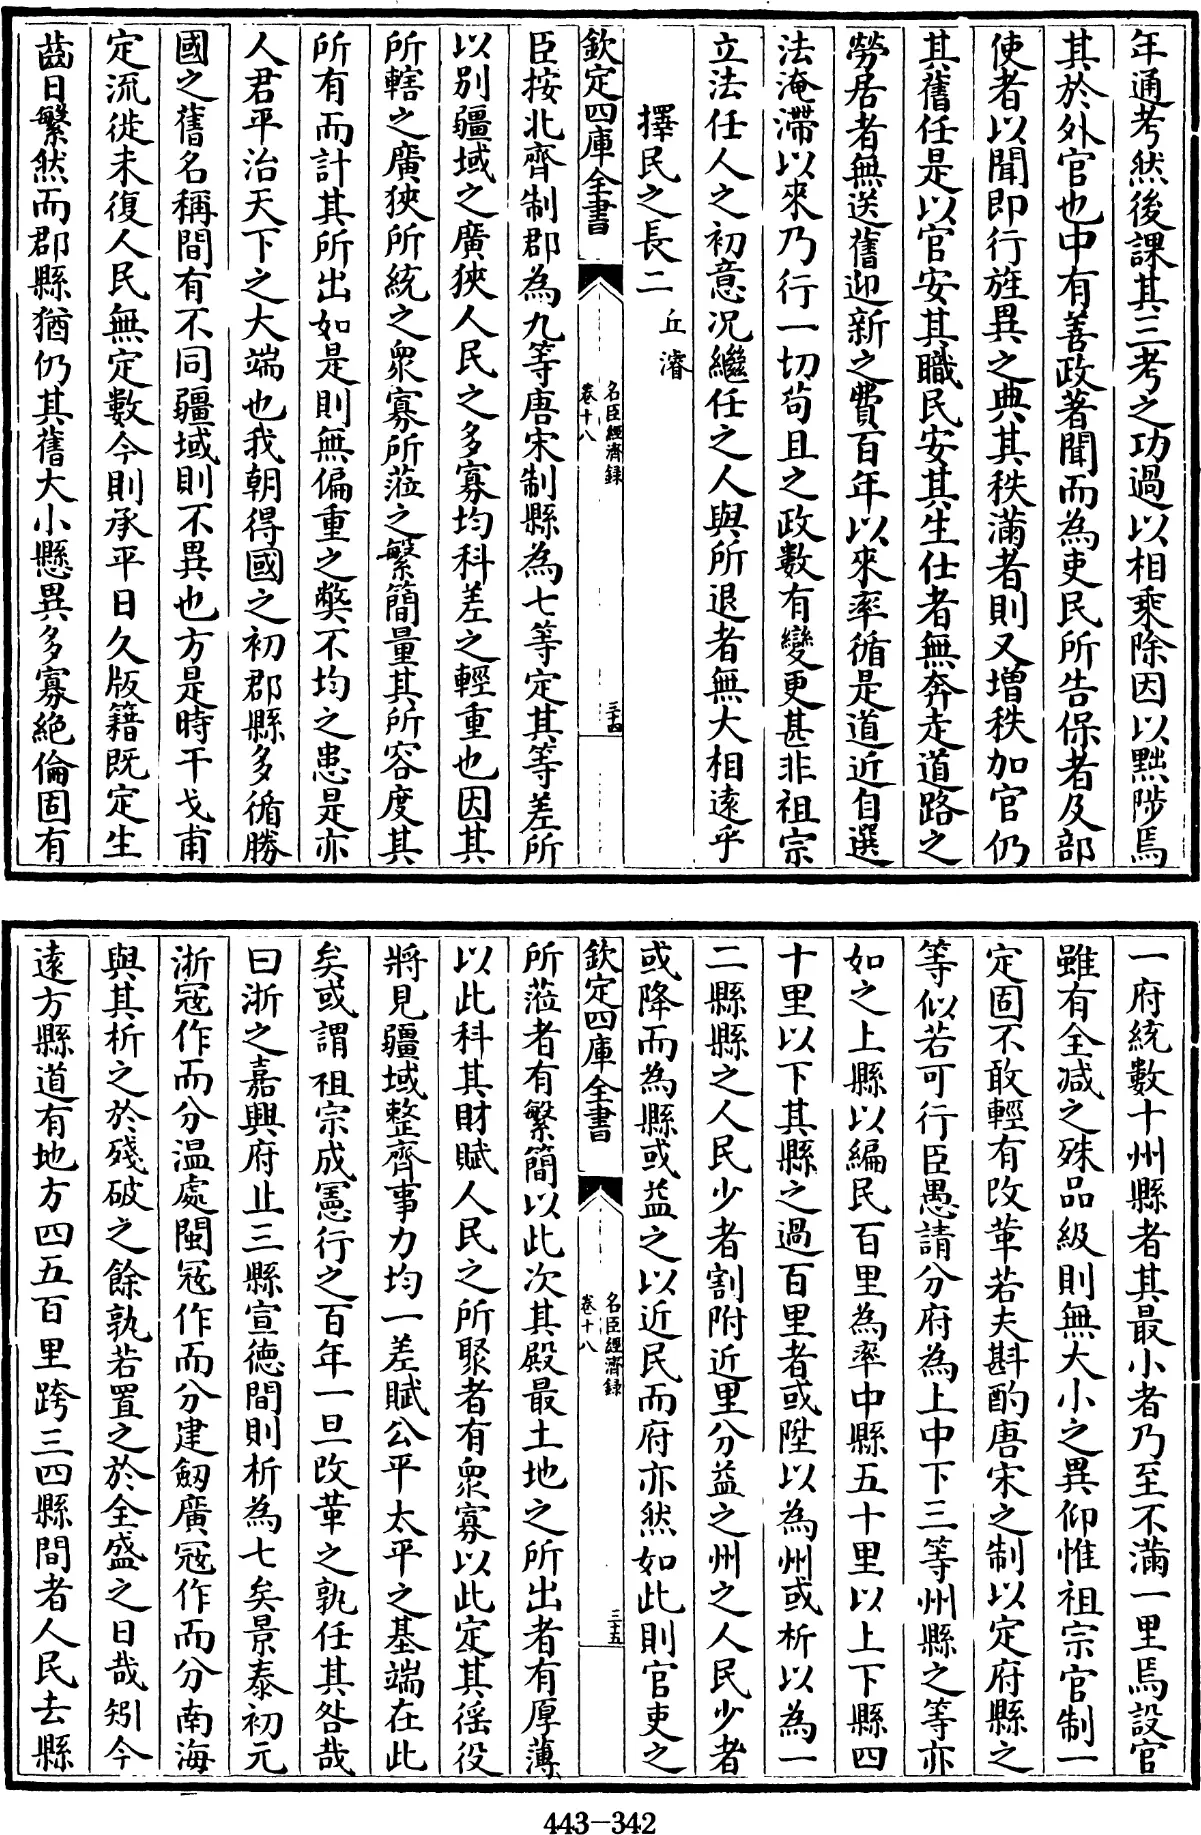 年通考然後課其三考之功過以相乘除因以黜陟焉
其於外官也中有善政著聞而為吏民所告保者及部
使者以聞即行旌異之典其秩滿者則又增秩加官仍
其舊任是以官安其職民安其生仕者無奔走道路之
勞居者無送舊迎新之費百年以來率循是道近自選
法淹滯以來乃行一切苟且之政數有變更甚非祖宗
立法任人之初意况繼任之人與所退者無大相遠乎
擇民之長二 丘濬
欽定四庫全書
名臣經濟録
卷十八
三十四
臣按北齊制郡為九等唐宋制縣為七等定其等差所
以别疆域之廣狹人民之多寡均科差之輕重也因其
所轄之廣狹所統之衆寡所蒞之繁簡量其所容度其
所有而計其所出如是則無偏重之弊不均之患是亦
人君平治天下之大端也我朝得國之初郡縣多循勝
國之舊名稱間有不同疆域則不異也方是時干戈甫
定流徙未復人民無定數今則承平日久版籍既定生
齒日繁然而郡縣猶仍其舊大小懸異多寡絶倫固有
一府統數十州縣者其最小者乃至不滿一里焉設官
雖有全减之殊品級則無大小之異仰惟祖宗官制一
定固不敢輕有改革若夫斟酌唐宋之制以定府縣之
等似若可行臣愚請分府為上中下三等州縣之等亦
如之上縣以編民百里為率中縣五十里以上下縣四
十里以下其縣之過百里者或陞以為州或析以為一
二縣縣之人民少者割附近里分益之州之人民少者
或降而為縣或益之以近民而府亦然如此則官吏之
欽定四庫全書
名臣經濟録
卷十八
三十五
所蒞者有繁簡以此次其殿最土地之所出者有厚薄
以此科其財賦人民之所聚者有衆寡以此定其徭役
將見疆域整齊事力均一差賦公平太平之基端在此
矣或謂祖宗成憲行之百年一旦改革之孰任其咎哉
曰浙之嘉興府止三縣宣德間則析為七矣景泰初元
浙冦作而分温處閩冦作而分建劒廣冦作而分南海
與其析之於殘破之餘孰若置之於全盛之日哉矧今
遠方縣道有地方四五百里跨三四縣間者人民去縣
443-342